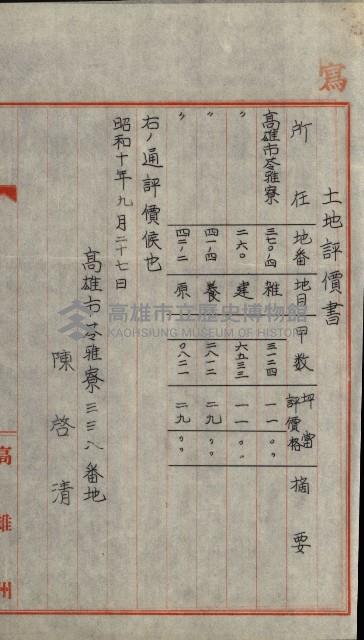 寫
土地評價書
所在 地番 地目 甲数 坪當評價格 摘要
高雄市苓雅寮 三七〇ノ四 雑 三一二四 一一〇〇
〃 二六〇 建 六五三三 一一〇〇
〃 四一ノ四 養 二八一二 二九〇〇
〃 四二ノ二 原 〇八二一 二九〇〇
右ノ通評價候也
昭和十年九月二十七日
高雄市苓雅寮三三八番地
陳啓清
高雄州
高雄市立歷史博物館
KAOHSIUNG MUSEUM OF HISTORY